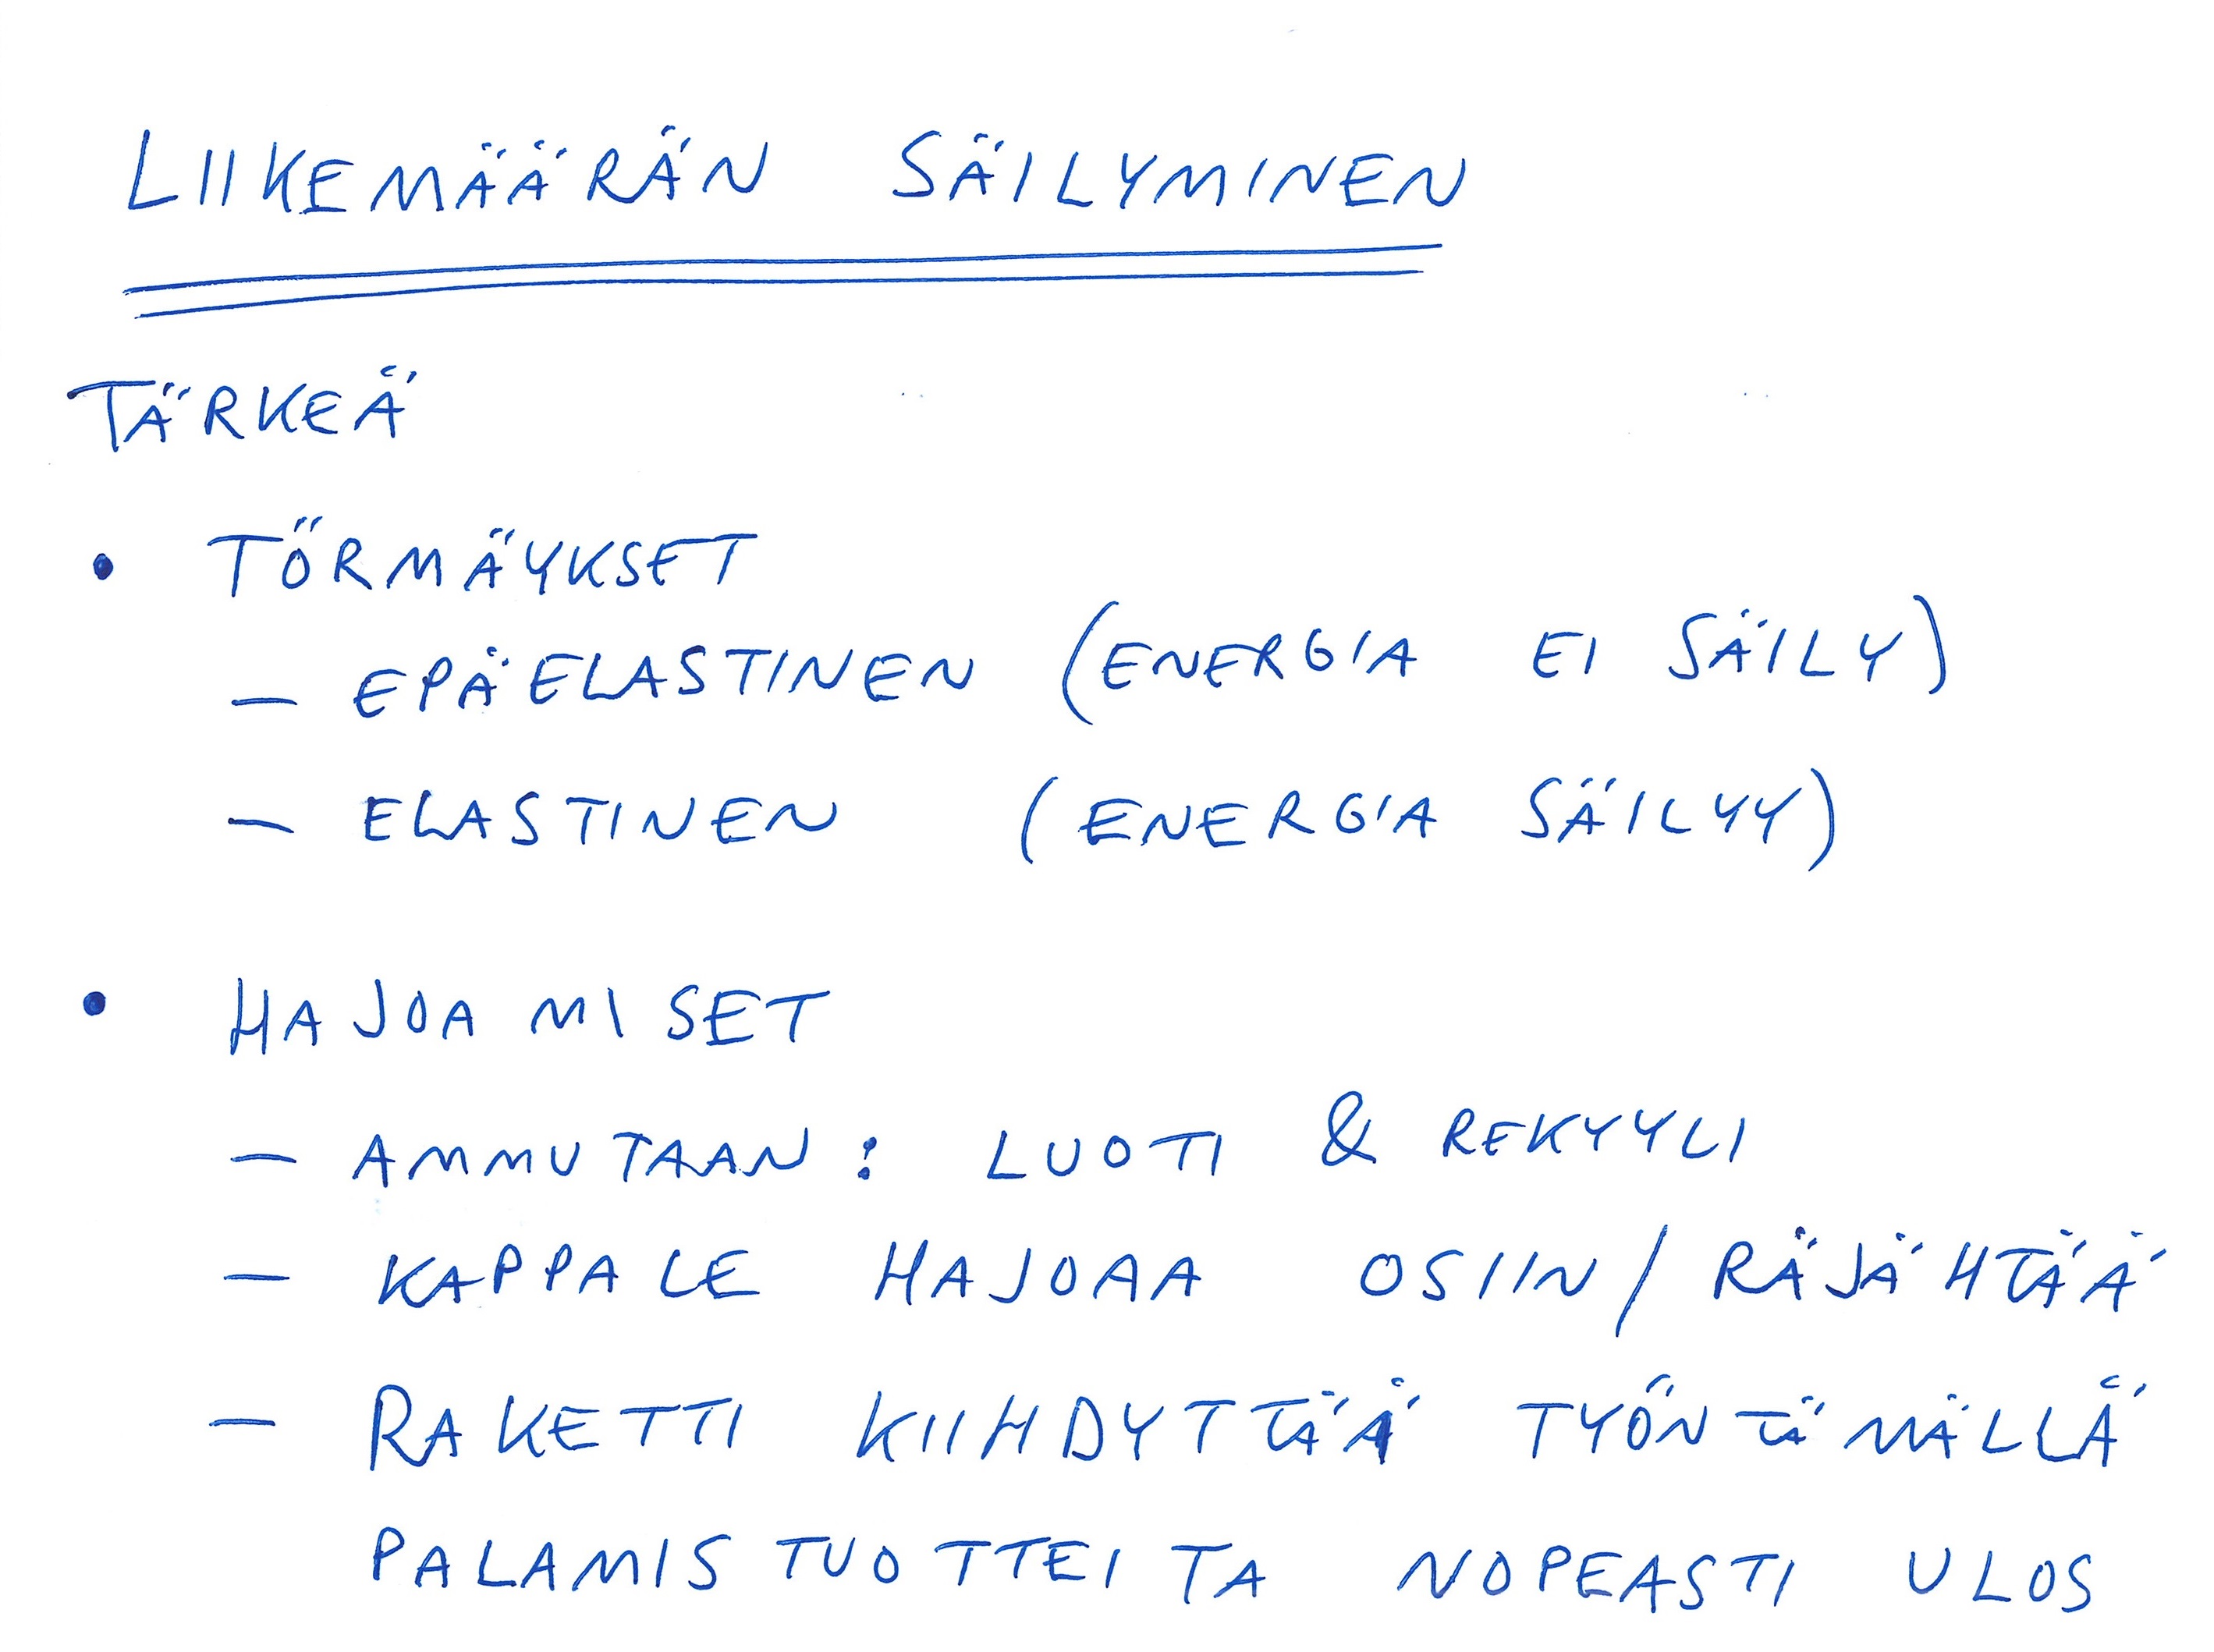 LIIKEMÄÄRÄN SÄILYMINEN
TÄRKEÄ
• TÖRMÄYKSET
– EPÄELASTINEN (ENERGIA EI SÄILY)
– ELASTINEN (ENERGIA SÄILYY)
• HAJOAMISET
– AMMUTAAN: LUOTI & REKYYLI
– KAPPALE HAJOAA OSIIN/RÄJÄHTÄÄ
– RAKETTI KIIHDYTTÄÄ TYÖNTÄMÄLLÄ
PALAMISTUOTTEITA NOPEASTI ULOS